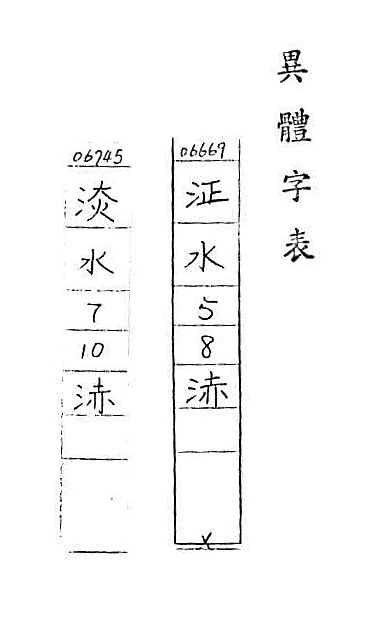 異體字表
06669
泟
水
5
8
浾
X
06745
水
7
10
浾